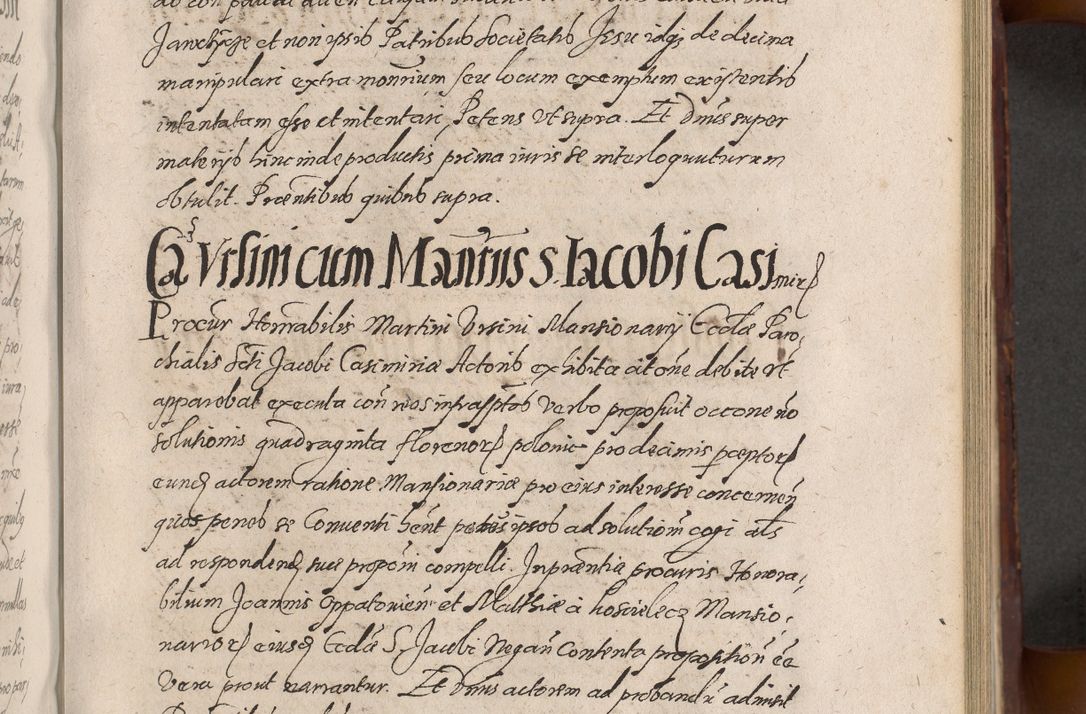 et non ipsis Patribus Societatis Jesu idq3 de decima
manipulari extra monrium seu locum exemptum existentis
intentatam esse et intentari, Petens Vt supra. Et Dnus super
materijs hinc inde productis prima iuris se interloquuturum
obtulit. Praentibus quibus supra.
Ca Vrsini cum Mannris s. Jacobi Casimir
Procur Honrabilis Martini Vrsini Mansionarij Eccliae Paro,
chialis Scti Jacobi Casimiriae Actoris exhibita citone debite vt
apparebat executa con reos infrasptos Verbo proposuit occone no
solutionis quadraginta florenor polonic pro decimis pceptor
eund actorem ratione Mansionariae pro eius interesse concernen
quos penes se Conventi hent petes ipsos ad solutiom cogi als
ad respondend suae proponi compelli. In praentia procuris Honora,
bilium Joannis Oppatovien et Matthiae à Koscielecz Mansio,
narior eiusd Eccliae S. Jacobi Negan Contenta propositiom ee
Vera prout narrantur. Et Dnus actorem ad proband admisit